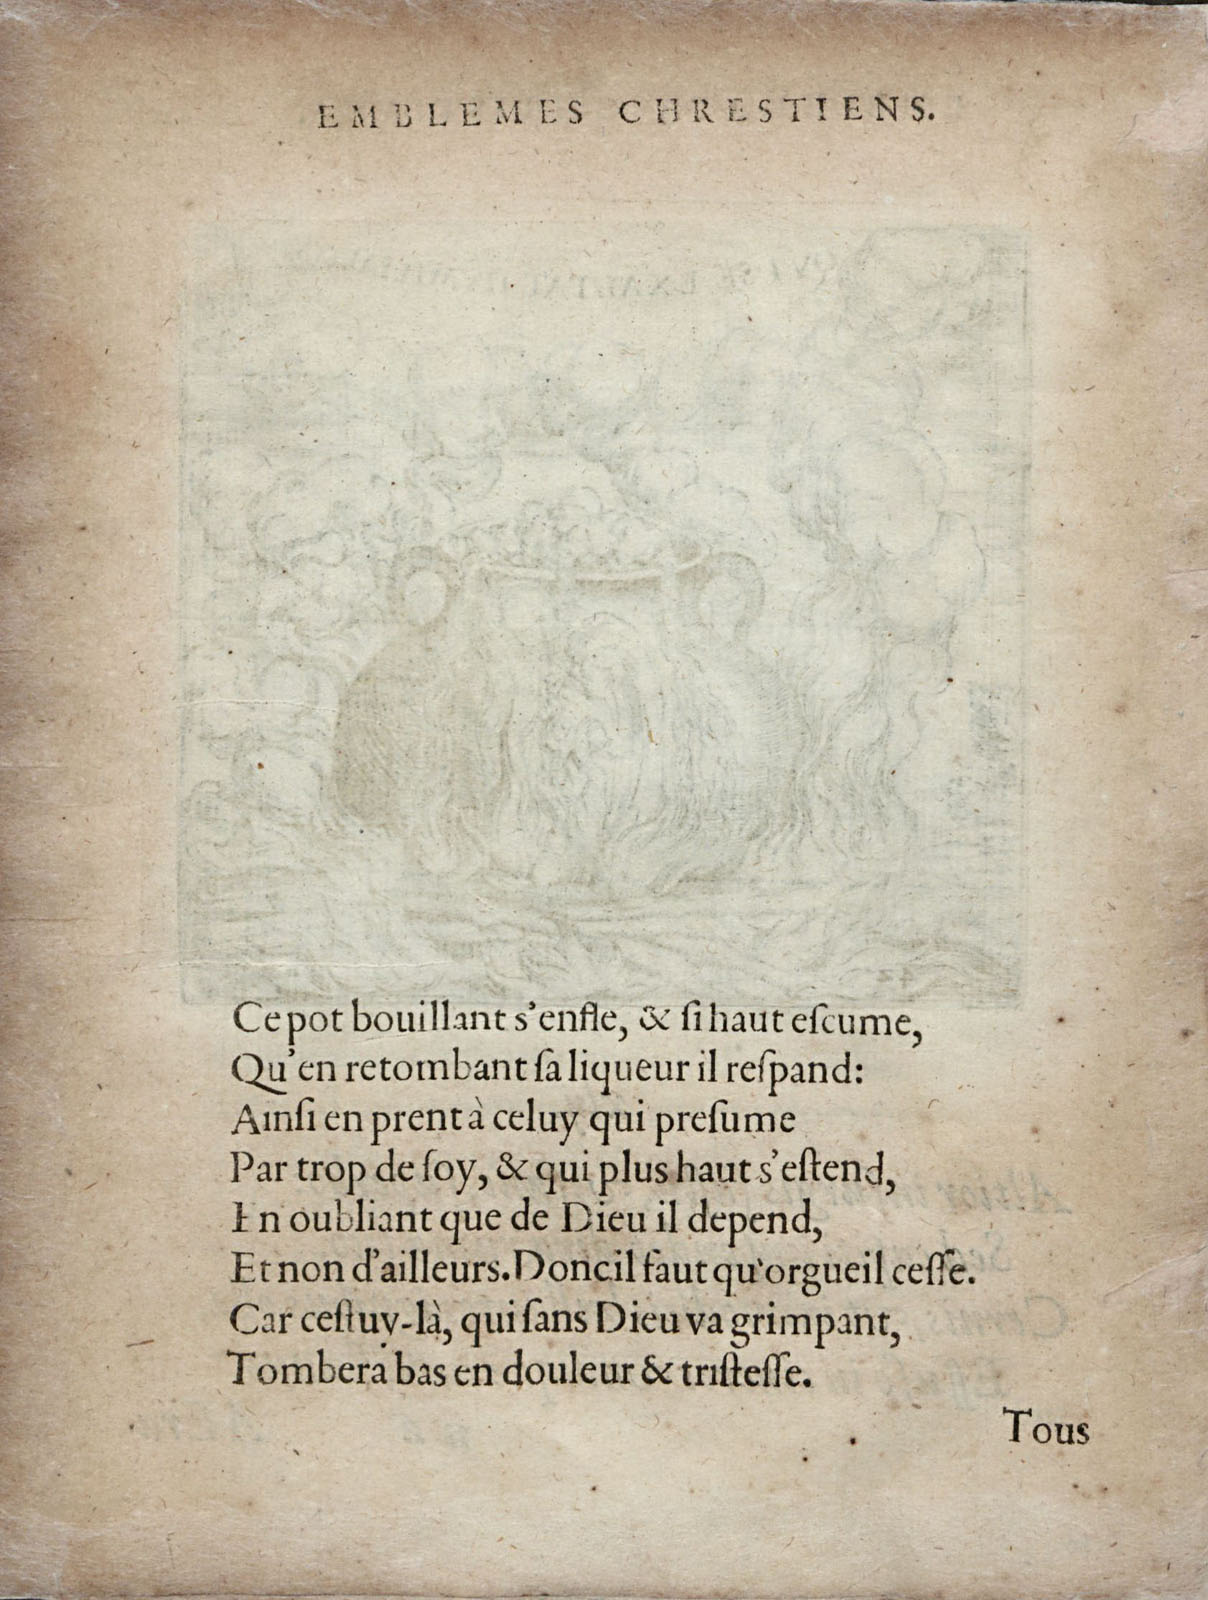 EMBLEMES CHRESTIENS.
Ce pot bouillant s'enfle, & ſi haut eſcume,
Qu'en retombant ſa liqueur il reſpand:
Ainſi en prent à celuy qui preſume
Par trop de ſoy, & qui plus haut s'eſtend,
En oubliant que de Dieu il depend,
Et non d'ailleurs. Donc il faut qu'orgueil ceſſe.
Car ceſtuy-là, qui ſans Dieu va grimpant,
Tombera bas en douleur & triſteſſe.
Tous